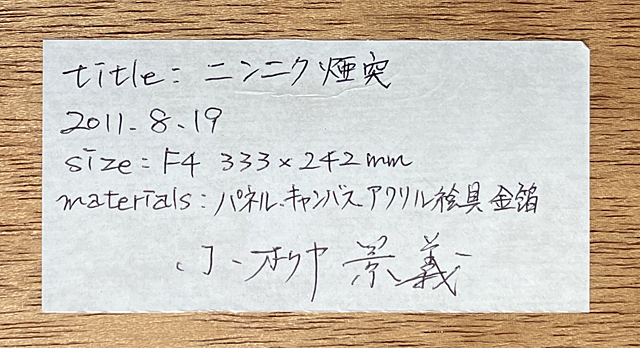 title: ニンニク煙突
2011.8.19
size: F4 333×242mm
materials: パネル、キャンバス、アクリル絵具、金箔
小柳 景義